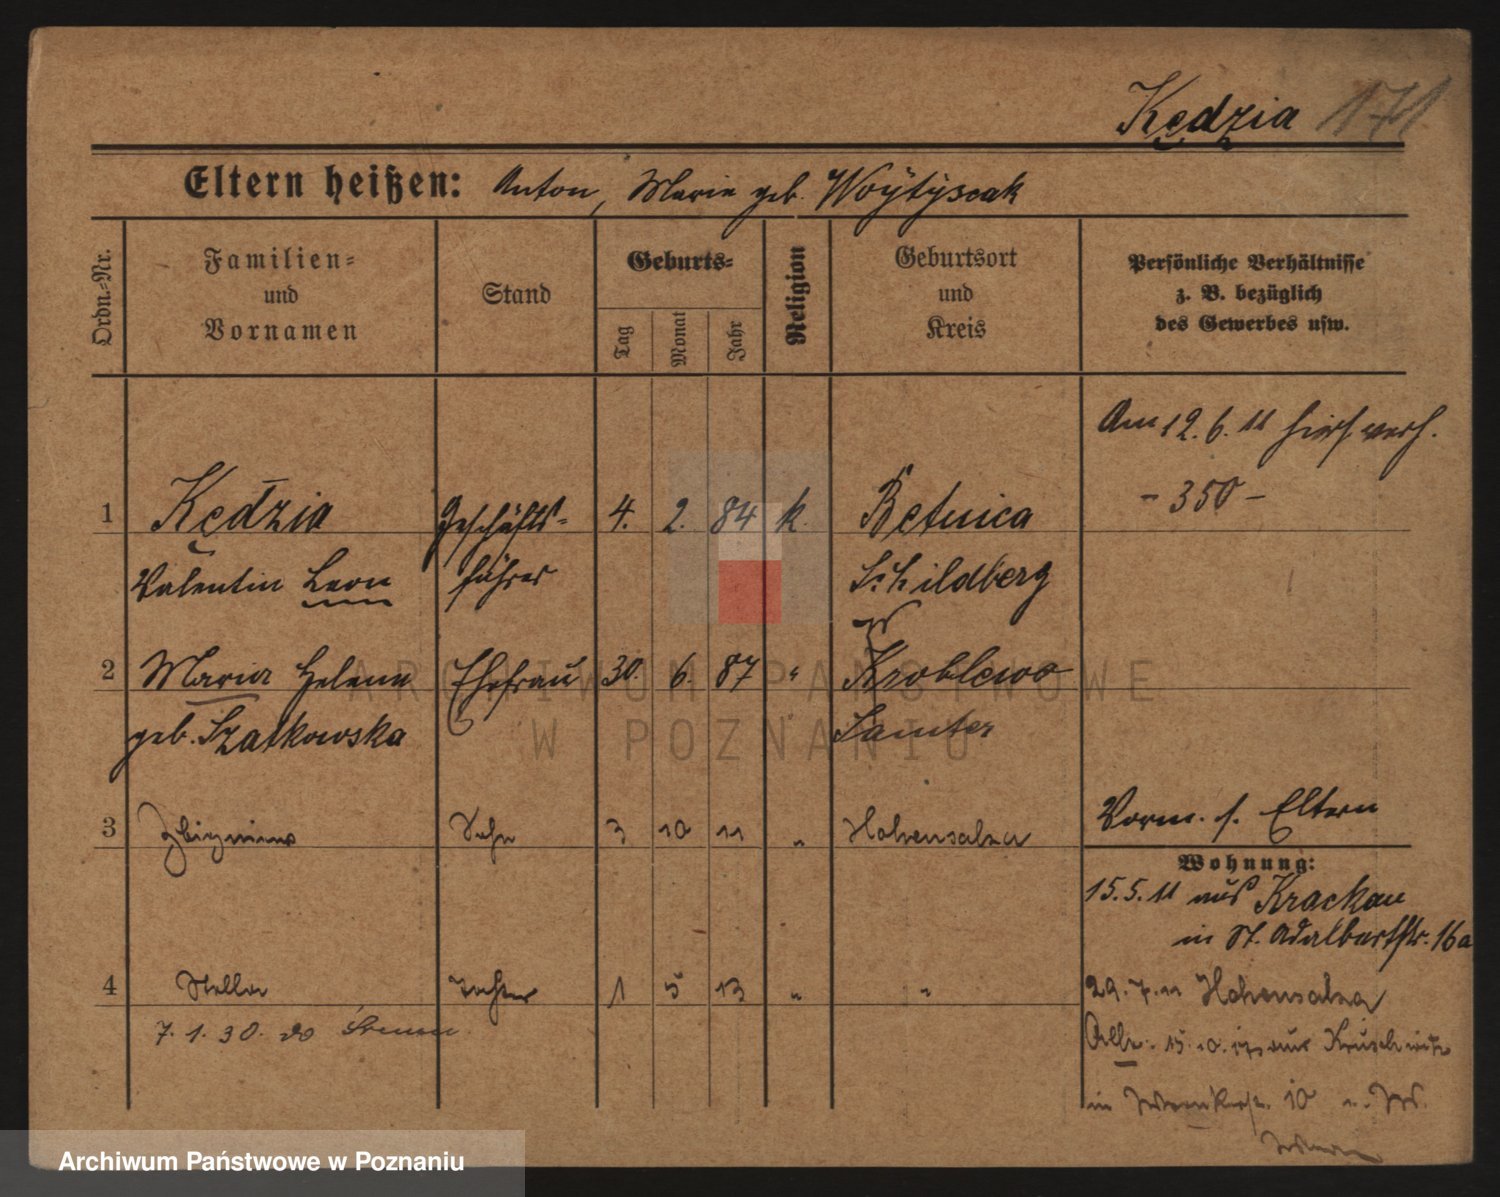 Kędzia 171
Eltern heißen: Anton, Marie geb. Woÿtÿscak
Ordn.-Nr.
Familien-
und
Vornamen
Stand
Geburts-
Tag
Monat
Jahr
Religion
Geburtsort
und
Kreis
Persönliche Verhältnisse
z. B. bezüglich
des Gewerbes usw.
Am 12.6.11 hies. verh.
- 350 -
1 Kędzia Geschäfts- 4. 2. 84 k. Retnica
Valentin Leon führer Schildberg
2 Maria Helene Ehefrau 30. 6. 87 " Kroblewo
geb. Szatkowska Samter
3 Zbigniew Sohn 3 10 11 " Hohensalza
Vorm. s. Eltern
Wohnung:
15.5.11 aus Krackau
in St. Adalbertstr. 16a
4 Stella Tochter 1 5 13 " "
29.7.11 Hohensalza
7.1.30. do
15.10.17 aus Kruschwitz
in 10
ARCHIWUM PAŃSTWOWE
W POZNANIU
Archiwum Państwowe w Poznaniu